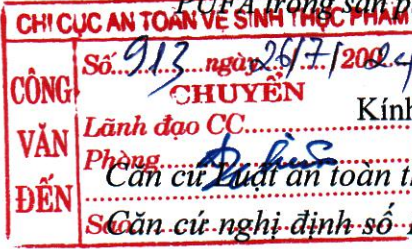 PUFA trong sản p
CHI CỤC AN TOÀN VỆ SINH THỰC PHẨM
CÔNG VĂN ĐẾN
Số 913 ngày 26/7/2024
CHUYỂN
Kính
Lãnh đạo CC
Phòng
Căn cứ Luật an toàn t
Sao
Căn cứ nghị định số